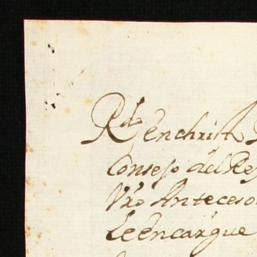 Rdo en christo
Consejo del Re
Vro Anteceso
Le encargue